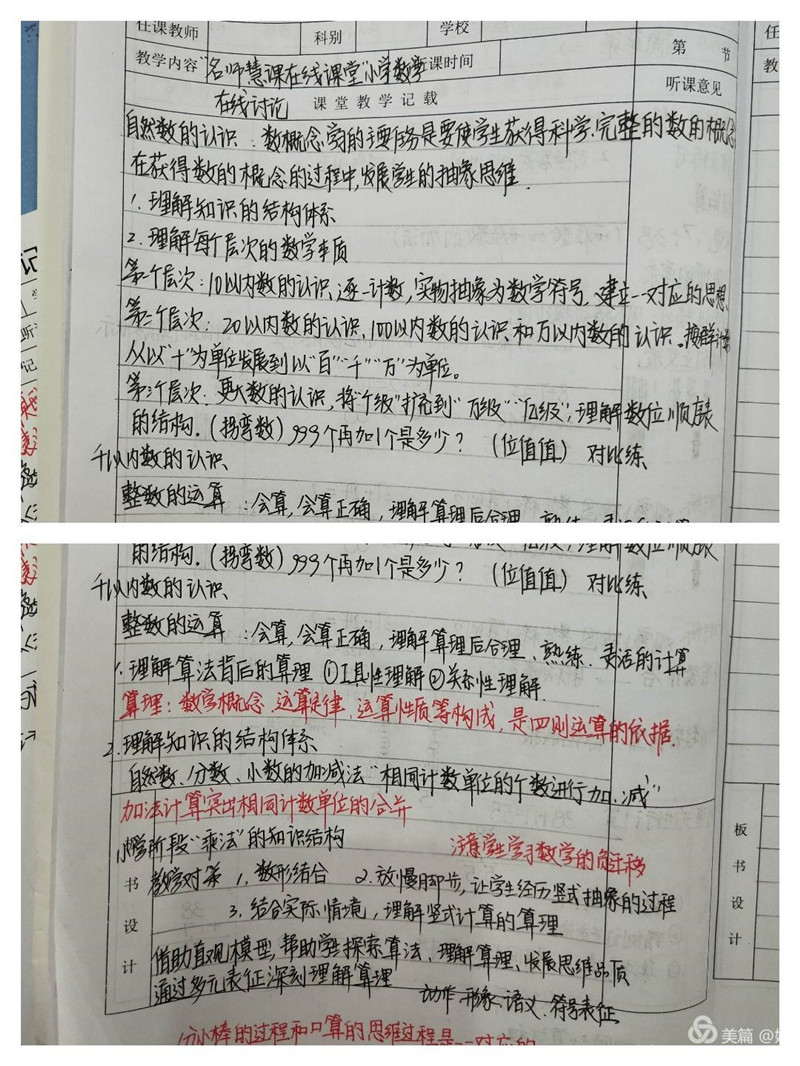 任课教师 科别 学校
教学内容 "名师慧课在线课堂"小学数学 课时间 第 节
在线讨论 课堂教学记载 听课意见
自然数的认识：数概念学的主要任务是要使学生获得科学.完整的数的概念
在获得数的概念的过程中,发展学生的抽象思维.
1. 理解知识的结构体系
2. 理解每个层次的数学本质
第一个层次：10以内数的认识,逐一计数,实物抽象为数学符号.建立一一对应的思想.
第二个层次：20以内数的认识,100以内数的认识和万以内数的认识.按群计数
从以"十"为单位发展到以"百""千""万"为单位。
第三个层次：更大数的认识,将"个级"扩充到"万级""亿级",理解数位顺序表
的结构.(拐弯数)999个再加1个是多少? (位值值) 对比练
千以内数的认识
整数的运算：会算,会算正确,理解算理后合理、熟练、灵活的计算
的结构.(拐弯数)999个再加1个是多少? (位值值) 对比练
千以内数的认识
整数的运算：会算,会算正确,理解算理后合理、熟练、灵活的计算
1.理解算法背后的算理 ①工具性理解②关系性理解
算理：数学概念、运算定律、运算性质等构成,是四则运算的依据.
2.理解知识的结构体系
自然数、分数、小数的加减法"相同计数单位的个数进行加、减"
加法计算突出相同计数单位的合并
小学阶段"乘法"的知识结构 注意学生学习数学的负迁移
教学对策 1.数形结合 2.放慢脚步,让学生经历竖式抽象的过程
3.结合实际情境,理解竖式计算的算理
借助直观模型,帮助学生探索算法、理解算理、发展思维品质
通过多元表征深刻理解算理 动作.形象.语义.符号表征
书设计
分小棒的过程和口算的思维过程是一一对应的
板书设计
美篇